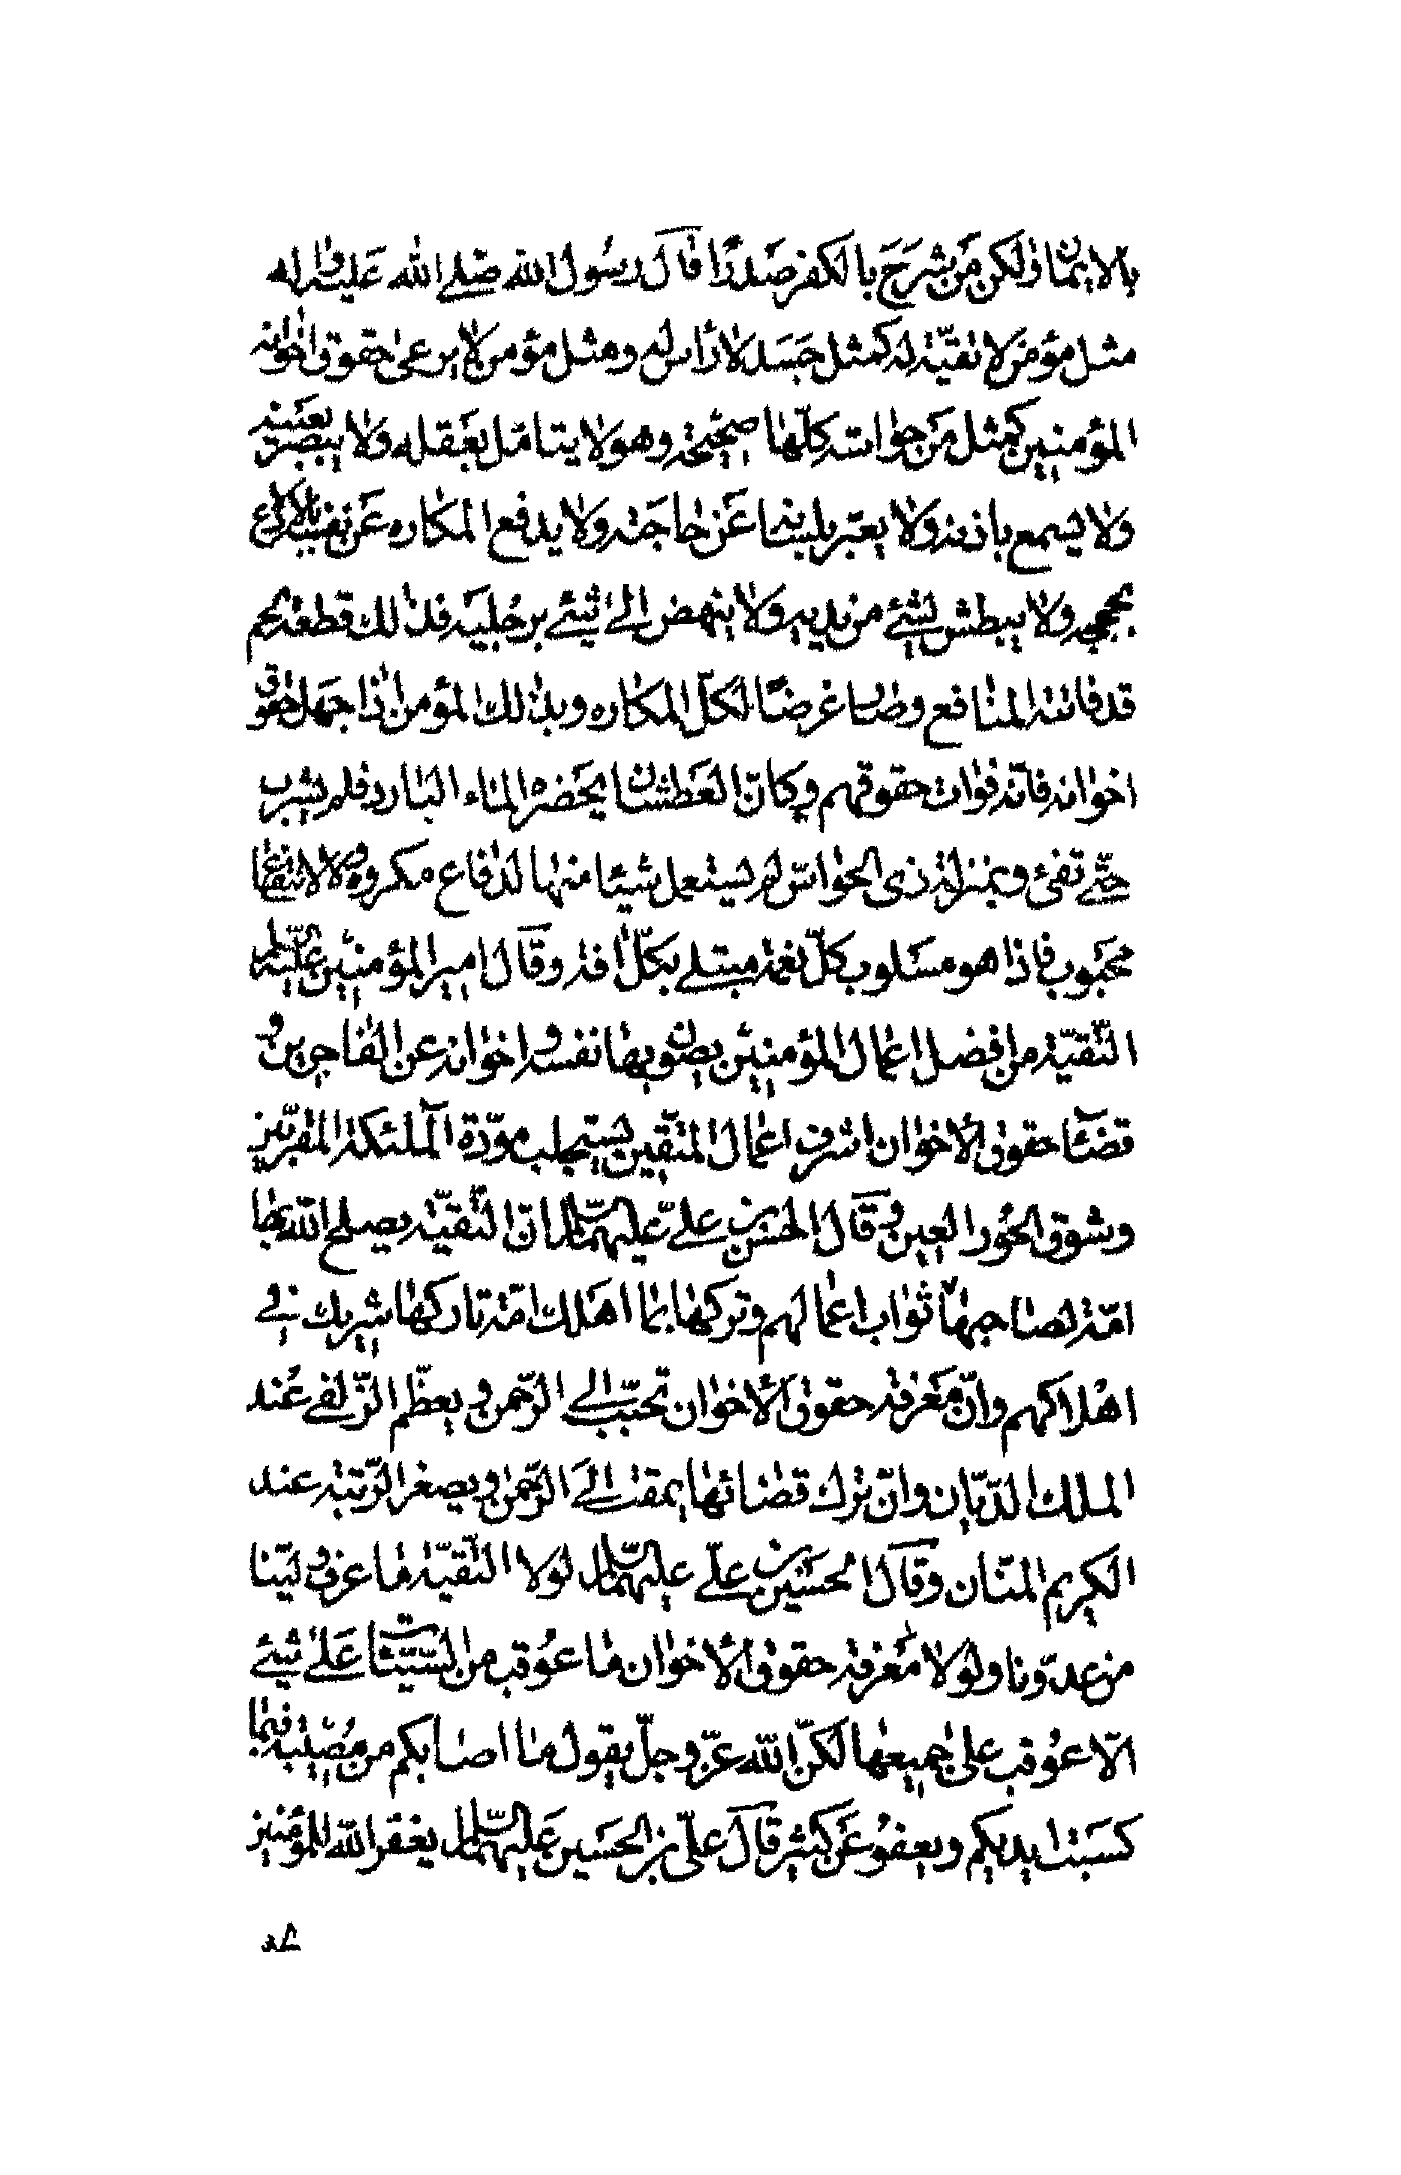 بالايمان ولكن من شرح بالكفر صدرا قال رسول الله صلى الله عليه واله
مثل مؤمن لا تقيّة له كمثل جسد لا رأس له ومثل مؤمن لا يرعى حقوق اخوانه
المؤمنين كمثل من حواسّه كلّها صحيحة وهو لا يتامّل بعقله ولا يبصر بعينه
ولا يسمع باذنه ولا يعبّر بلسانه عن حاجته ولا يدفع المكاره عن نفسه بالادلاء
بحججه ولا يبطش لشئ من يديه ولا ينهض الى شئ برجليه فذلك قطعة لحم
قد فاتته المنافع وصار غرضا لكلّ المكاره وبذلك المؤمن اذا جهل حقوق
اخوانه فاته فوات حقوقهم وكان العطشان يحضره الماء البارد فلم يشرب
حتّى تفئ وبمنزلة ذى الحواسّ لم يستعمل شيئا منها لدفاع مكروه ولا لانتفاع
محبوب فاذا هو مسلوب كلّ نعمة مبتلى بكلّ افة وقال امير المؤمنين عليه السّلام
التّقيّة من افضل اعمال المؤمنين يصون بها نفسه واخوانه عن الفاجرين و
قضاء حقوق الاخوان اشرف اعمال المتّقين يستجلب مودّة الملئكة المقرّبين
وشوق الحور العين وقال الحسن بن علىّ عليهما السّلام انّ التّقيّة يصلح الله بها
امّة لصاحبها ثواب اعمالهم وتركها بما اهلك امّة تاركها شريك فى
اهلاكهم وانّ معرفة حقوق الاخوان تحبّب الى الرّحمن ويعظّم الزّلفى عند
الملك الدّيّان وانّ ترك قضائها يمقت الى الرّحمن ويصغر الرّتبة عند
الكريم المنّان وقال الحسين بن علىّ عليهما السّلام لولا التّقيّة ما عرف وليّنا
من عدوّنا ولولا معرفة حقوق الاخوان ما عوقب من السّيّئات على شئ
الّا عوقب على جميعها لكنّ الله عزّ وجلّ يقول ما اصابكم من مصيبة فبما
كسبت ايديكم ويعفو عن كثير قال علىّ بن الحسين عليهما السّلام يغفر الله للمؤمنين